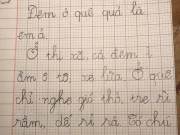 Đêm ở quê quả là
êm ả.
Ở thị xã, cả đêm ì
ầm ô tô, xe lửa. Ở quê
chỉ nghe gió thổ, tre rì
rầm, dế rỉ rả. Có chú